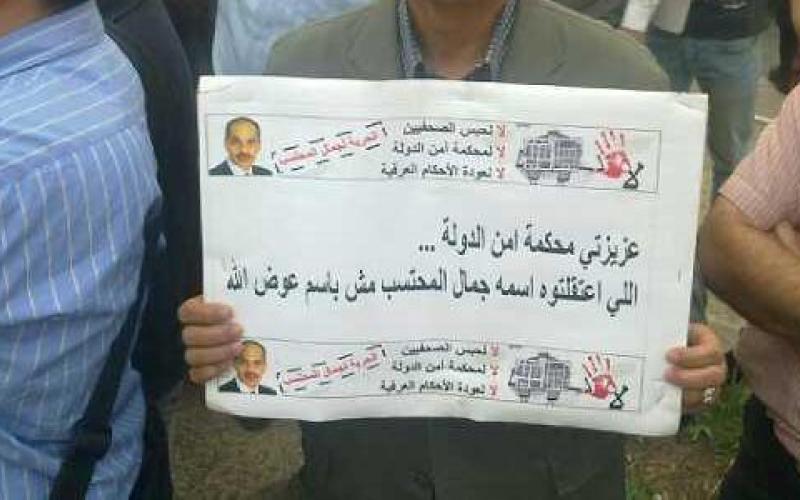 لا لحبس الصحفيين
لا لمحكمة امن الدولة
لا لعودة الأحكام العرفية
الحرية لجمال المحتسب
لا
عزيزتي محكمة امن الدولة ...
اللي اعتقلتوه اسمه جمال المحتسب مش باسم عوض الله
لا لحبس الصحفيين
لا لمحكمة امن الدولة
لا لعودة الأحكام العرفية
الحرية لجمال المحتسب
لا